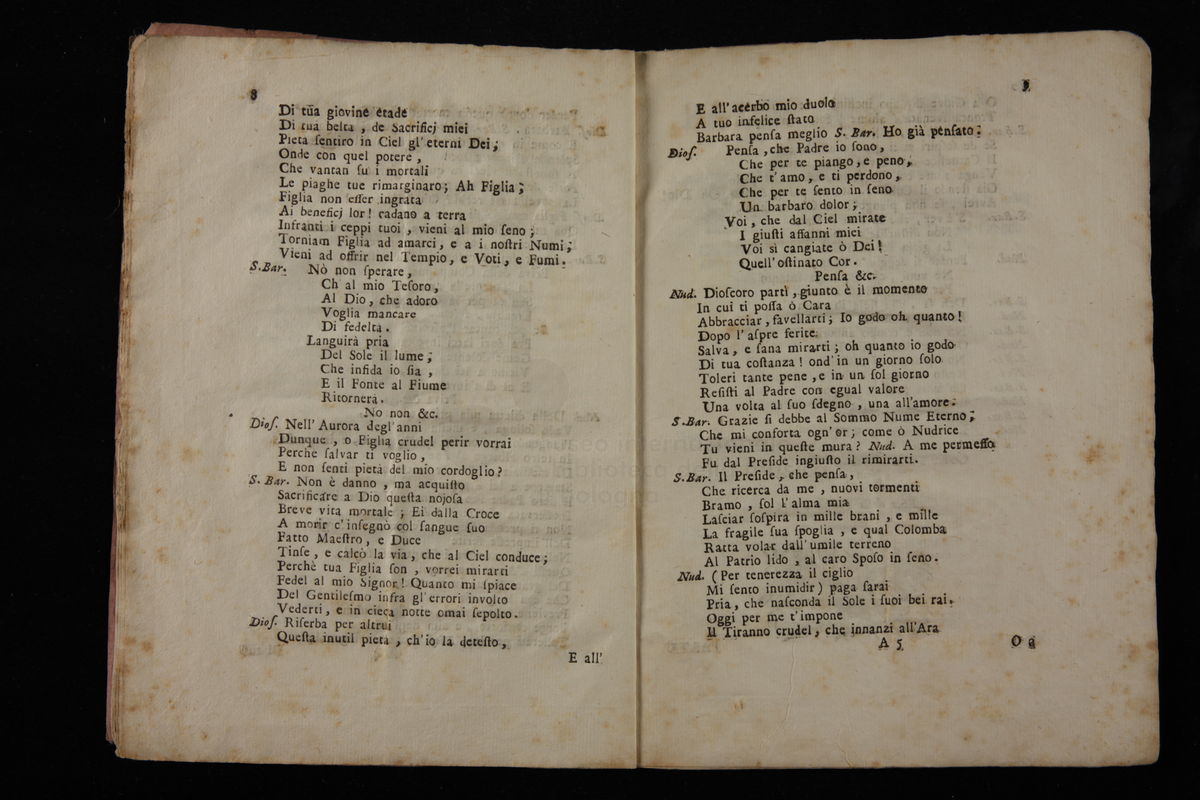 8
Di tua giovine etade
Di tua beltà, de Sacrificj miei
Pietà ſentiro in Ciel gl'eterni Dei;
Onde con quel potere,
Che vantan ſu i mortali
Le piaghe tue rimarginaro; Ah Figlia;
Figlia non eſſer ingrata
Ai beneficj lor! cadano a terra
Infranti i ceppi tuoi, vieni al mio ſeno;
Torniam Figlia ad amarci, e a i noſtri Numi;
Vieni ad offrir nel Tempio, e Voti, e Fumi.
S. Bar. Nò non ſperare,
Ch al mio Teſoro,
Al Dio, che adoro
Voglia mancare
Di fedeltà.
Languirà pria
Del Sole il lume;
Che infida io ſia,
E il Fonte al Fiume
Ritornerà.
No non &c.
Dioſ. Nell' Aurora degl'anni
Dunque, o Figlia crudel perir vorrai
Perchè ſalvar ti voglio,
E non ſenti pietà del mio cordoglio?
S. Bar. Non è danno, ma acquiſto
Sacrificare a Dio queſta nojoſa
Breve vita mortale; Ei dalla Croce
A morir c'inſegnò col ſangue ſuo
Fatto Maeſtro, e Duce
Tinſe, e calcò la via, che al Ciel conduce;
Perchè tua Figlia ſon, vorrei mirarti
Fedel al mio Signor! Quanto mi ſpiace
Del Gentileſmo infra gl'errori involto
Vederti, e in cieca notte omai ſepolto.
Dioſ. Riſerba per altrui
Queſta inutil pietà, ch'io la deteſto,
E all'
9
E all'acerbo mio duolo
A tuo infelice ſtato
Barbara penſa meglio S. Bar. Ho già penſato.
Dioſ. Penſa, che Padre io ſono,
Che per te piango, e peno,
Che t'amo, e ti perdono,
Che per te ſento in ſeno
Un barbaro dolor;
Voi, che dal Ciel mirate
I giuſti affanni miei
Voi sì cangiate ò Dei!
Quell'oſtinato Cor.
Penſa &c.
Nud. Dioſcoro partì, giunto è il momento
In cui ti poſſa ò Cara
Abbracciar, favellarti; Io godo oh quanto!
Dopo l'aſpre ferite
Salva, e ſana mirarti; oh quanto io godo
Di tua coſtanza! ond'in un giorno ſolo
Toleri tante pene, e in un ſol giorno
Reſiſti al Padre con egual valore
Una volta al ſuo ſdegno, una all'amore.
S. Bar. Grazie ſi debbe al Sommo Nume Eterno;
Che mi conforta ogn'or; come ò Nudrice
Tu vieni in queſte mura? Nud. A me permeſſo
Fu dal Preſide ingiuſto il rimirarti.
S. Bar. Il Preſide, che penſa,
Che ricerca da me, nuovi tormenti
Bramo, ſol l'alma mia
Laſciar ſoſpira in mille brani, e mille
La fragile ſua ſpoglia, e qual Colomba
Ratta volar dall'umile terreno
Al Patrio lido, al caro Spoſo in ſeno.
Nud. (Per tenerezza il ciglio
Mi ſento inumidir) paga ſarai
Pria, che naſconda il Sole i ſuoi bei rai.
Oggi per me t'impone
Il Tiranno crudel, che innanzi all'Ara
A 5 O a